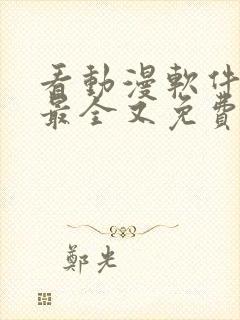 看動漫軟件
最全又免費
鄭光